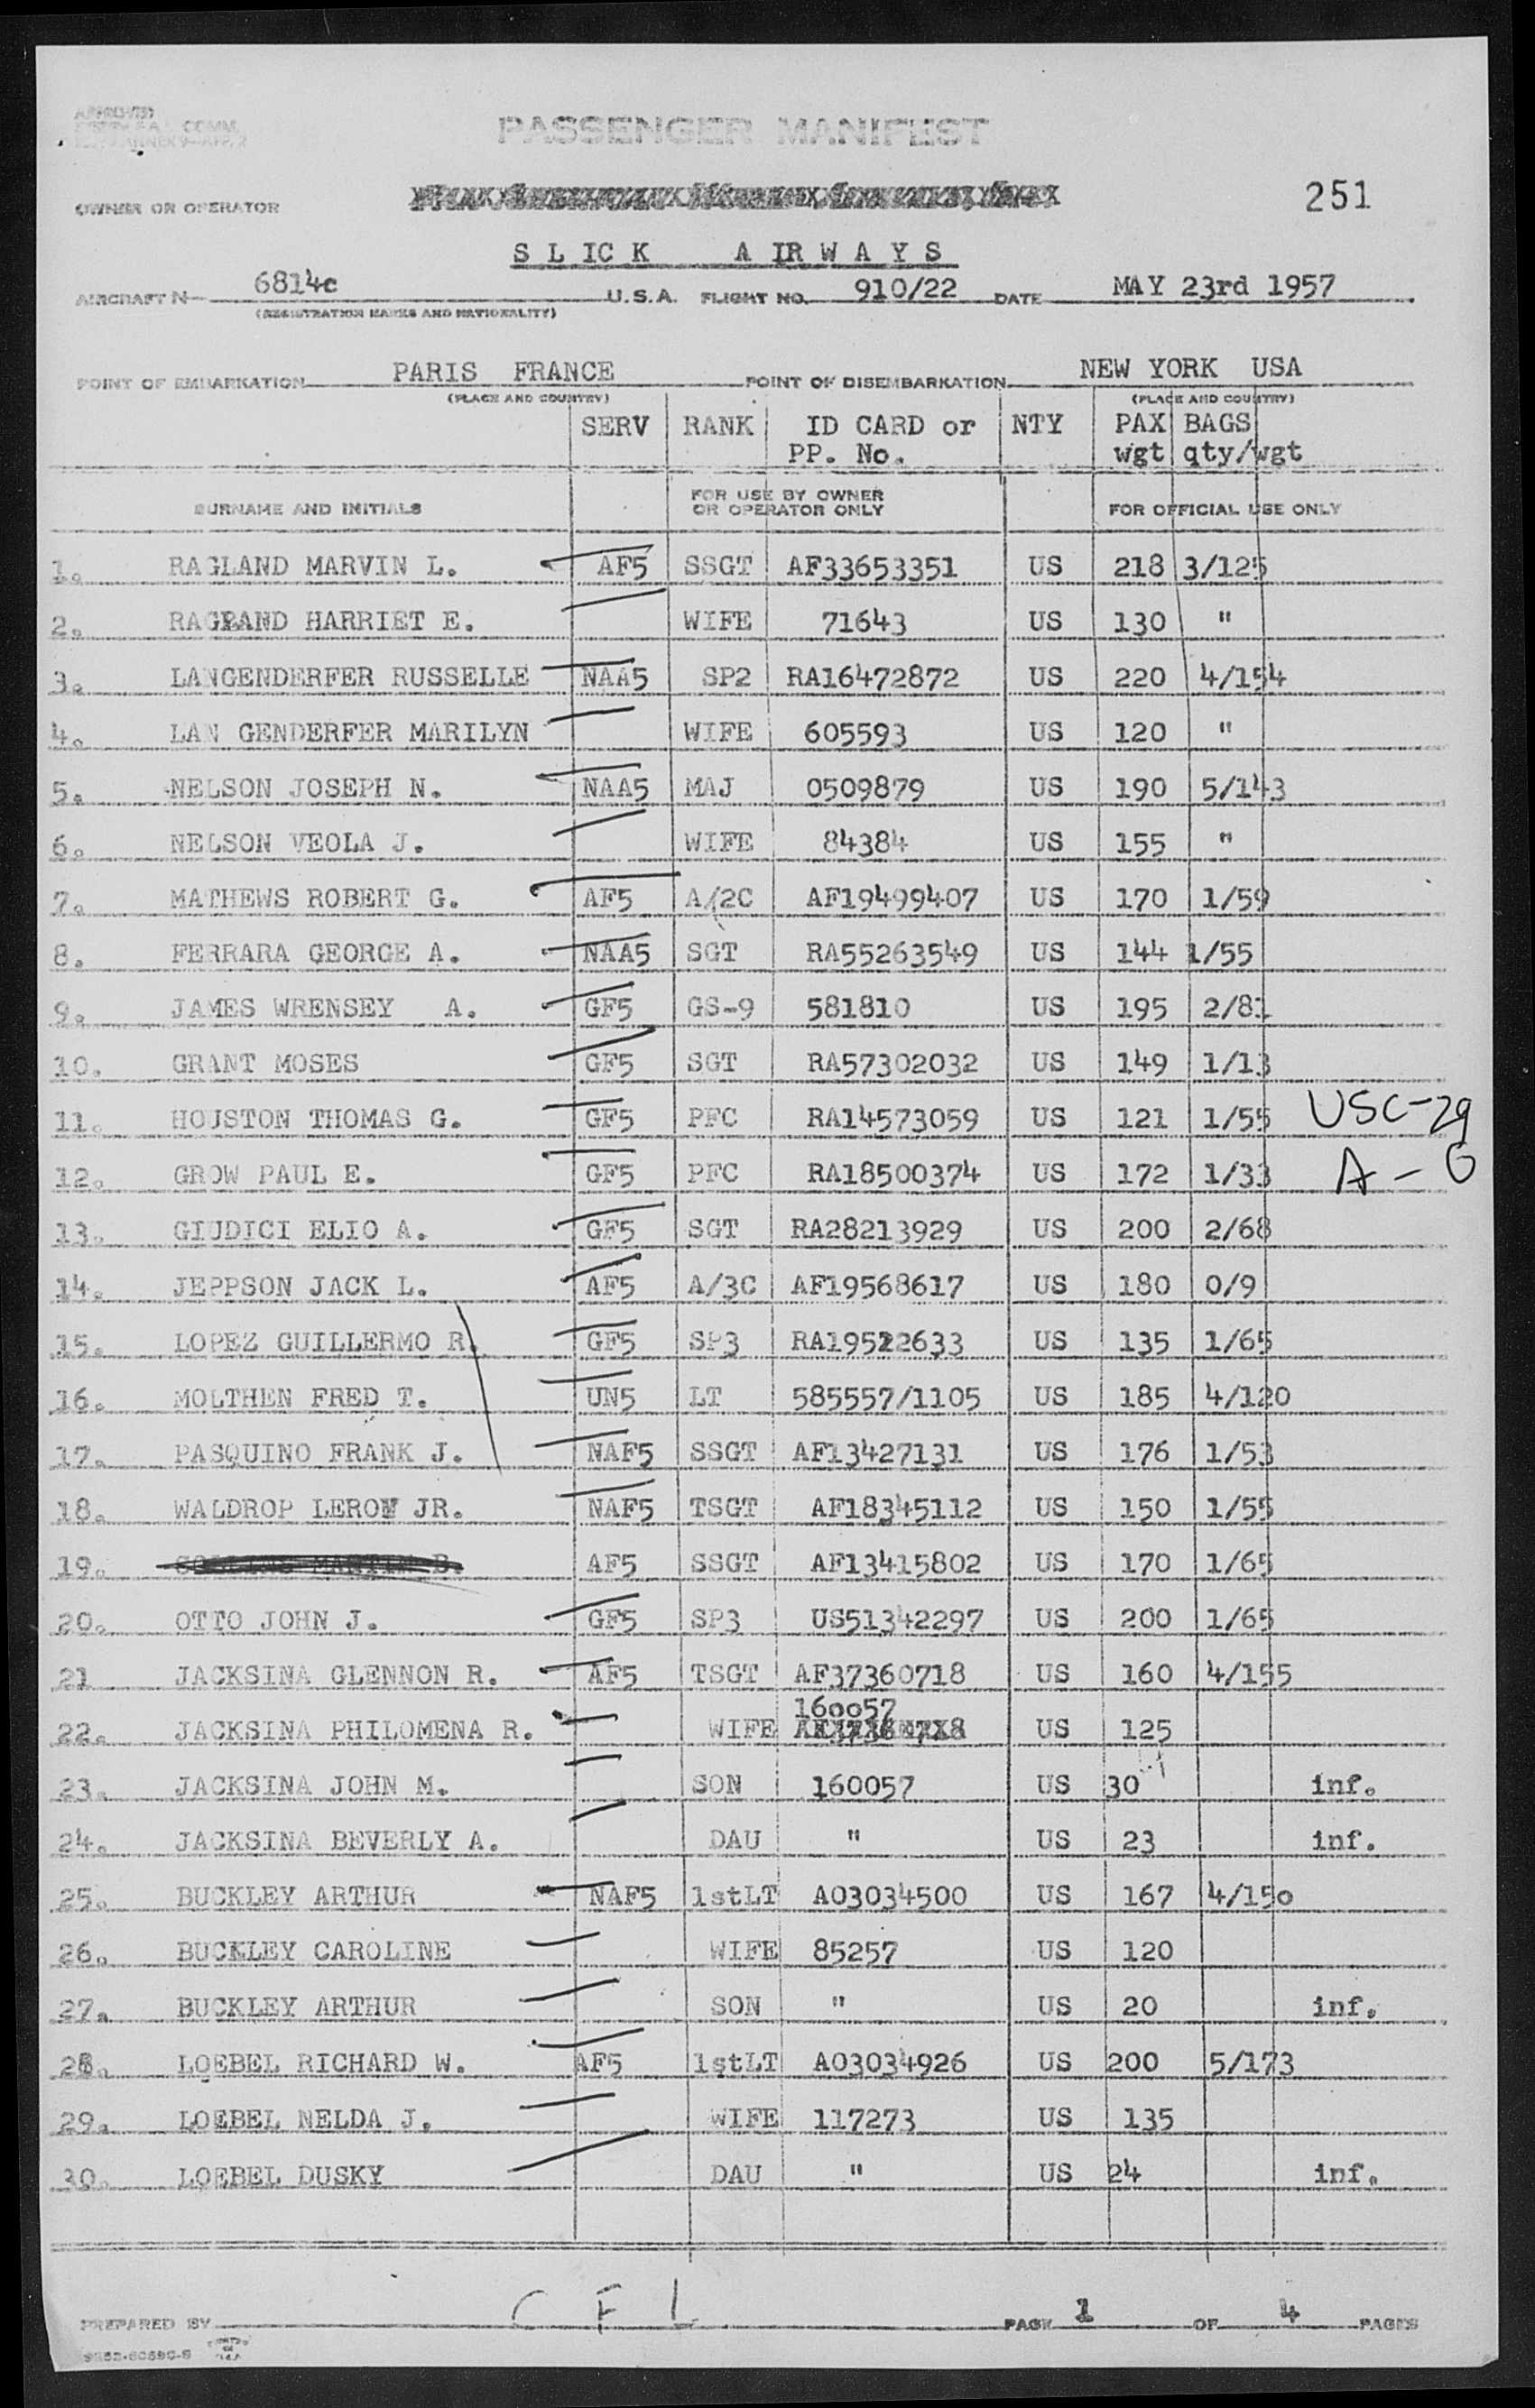 PASSENGER MANIFEST
251
OWNER OR OPERATOR
SLICK AIRWAYS
AIRCRAFT N 6814c U.S.A. FLIGHT NO. 910/22 DATE MAY 23rd 1957
(REGISTRATION MARKS AND NATIONALITY)
POINT OF EMBARKATION PARIS FRANCE POINT OF DISEMBARKATION NEW YORK USA
(PLACE AND COUNTRY) (PLACE AND COUNTRY)
SERV RANK ID CARD or NTY PAX BAGS
PP. No. wgt qty/wgt
SURNAME AND INITIALS FOR USE BY OWNER OR OPERATOR ONLY FOR OFFICIAL USE ONLY
1. RAGLAND MARVIN L. AF5 SSGT AF33653351 US 218 3/125
2. RAGLAND HARRIET E. WIFE 71643 US 130 "
3. LANGENDERFER RUSSELLE NAA5 SP2 RA16472872 US 220 4/154
4. LAN GENDERFER MARILYN WIFE 605593 US 120 "
5. NELSON JOSEPH N. NAA5 MAJ 0509879 US 190 5/143
6. NELSON VEOLA J. WIFE 84384 US 155 "
7. MATHEWS ROBERT G. AF5 A/2C AF19499407 US 170 1/59
8. FERRARA GEORGE A. NAA5 SGT RA55263549 US 144 1/55
9. JAMES WRENSEY A. GF5 GS-9 581810 US 195 2/81
10. GRANT MOSES GF5 SGT RA57302032 US 149 1/13
11. HOUSTON THOMAS G. GF5 PFC RA14573059 US 121 1/55 USC-29
12. GROW PAUL E. GF5 PFC RA18500374 US 172 1/33 A-0
13. GIUDICI ELIO A. GF5 SGT RA28213929 US 200 2/68
14. JEPPSON JACK L. AF5 A/3C AF19568617 US 180 0/9
15. LOPEZ GUILLERMO R. GF5 SP3 RA19522633 US 135 1/65
16. MOLTHEN FRED T. UN5 LT 585557/1105 US 185 4/120
17. PASQUINO FRANK J. NAF5 SSGT AF13427131 US 176 1/53
18. WALDROP LEROY JR. NAF5 TSGT AF18345112 US 150 1/55
19. AF5 SSGT AF13415802 US 170 1/65
20. OTTO JOHN J. GF5 SP3 US51342297 US 200 1/65
21 JACKSINA GLENNON R. AF5 TSGT AF37360718 US 160 4/155
22. JACKSINA PHILOMENA R. WIFE 160057 US 125
23. JACKSINA JOHN M. SON 160057 US 30 inf.
24. JACKSINA BEVERLY A. DAU " US 23 inf.
25. BUCKLEY ARTHUR NAF5 1stLT AO3034500 US 167 4/150
26. BUCKLEY CAROLINE WIFE 85257 US 120
27. BUCKLEY ARTHUR SON " US 20 inf.
28. LOEBEL RICHARD W. AF5 1stLT AO3034926 US 200 5/173
29. LOEBEL NELDA J. WIFE 117273 US 135
30. LOEBEL DUSKY DAU " US 24 inf.
C F L
PREPARED BY PAGE 1 OF 4 PAGES